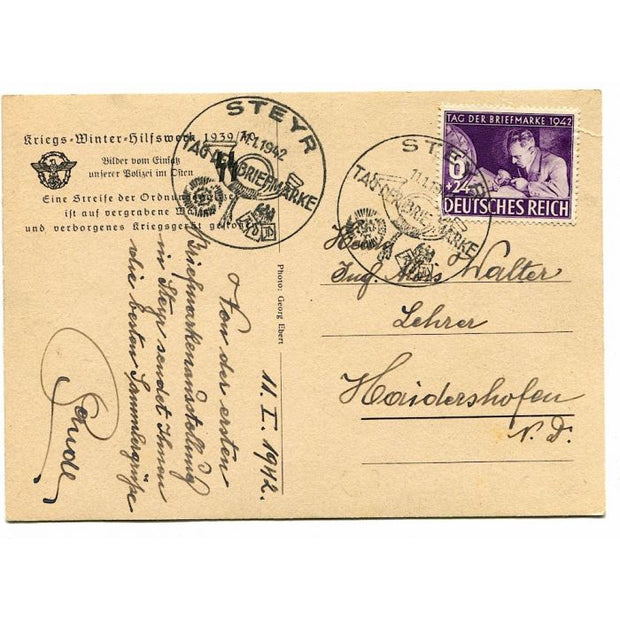 Kriegs-Winter-Hilfswerk 1939/40
Bilder vom Einsatz
unserer Polizei im Osten
Eine Streife der Ordnungs
ist auf vergrabene
und verborgenes Kriegsgerät
STEYR
11.1.1942
TAG DER BRIEFMARKE
STEYR
11.1.
TAG DER BRIEFMARKE
TAG DER BRIEFMARKE 1942
6
+24
DEUTSCHES REICH
Photo: Georg Ebert
11. I. 1942.
Von der ersten
Briefmarkenausstellung
in Steyr sendet Ihnen
die besten Sammlergrüße
Herrn
Ing. Alois Walter
Lehrer
Haidershofen
N. D.